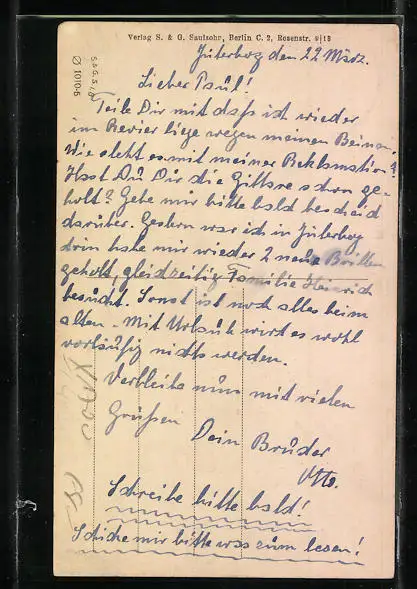 Verlag S. & G. Saulsohn, Berlin C. 2, Rosenstr. 9/13
S.&G.S.i.B.
Ø 1010-5
Jüterbog den 22 März.
Lieber Paul!
Teile Dir mit daß ich wieder
im Revier liege wegen meinen Beinen.
Wie steht es mit meiner Reklamation?
Hast Du Dir die Gitarre schon ge-
holt? Gebe mir bitte bald bescheid
darüber. Gestern war ich in Jüterbog
drin habe mir wieder 2 neue Brillen
geholt, gleichzeitig Familie Heinrich
besucht. Sonst ist noch alles beim
alten. Mit Urlaub wird es wohl
vorläufig nichts werden.
Verbleibe nun mit vielen
Grüßen
Dein Bruder
Otto.
Schreibe bitte bald!
Schicke mir bitte was zum lesen!